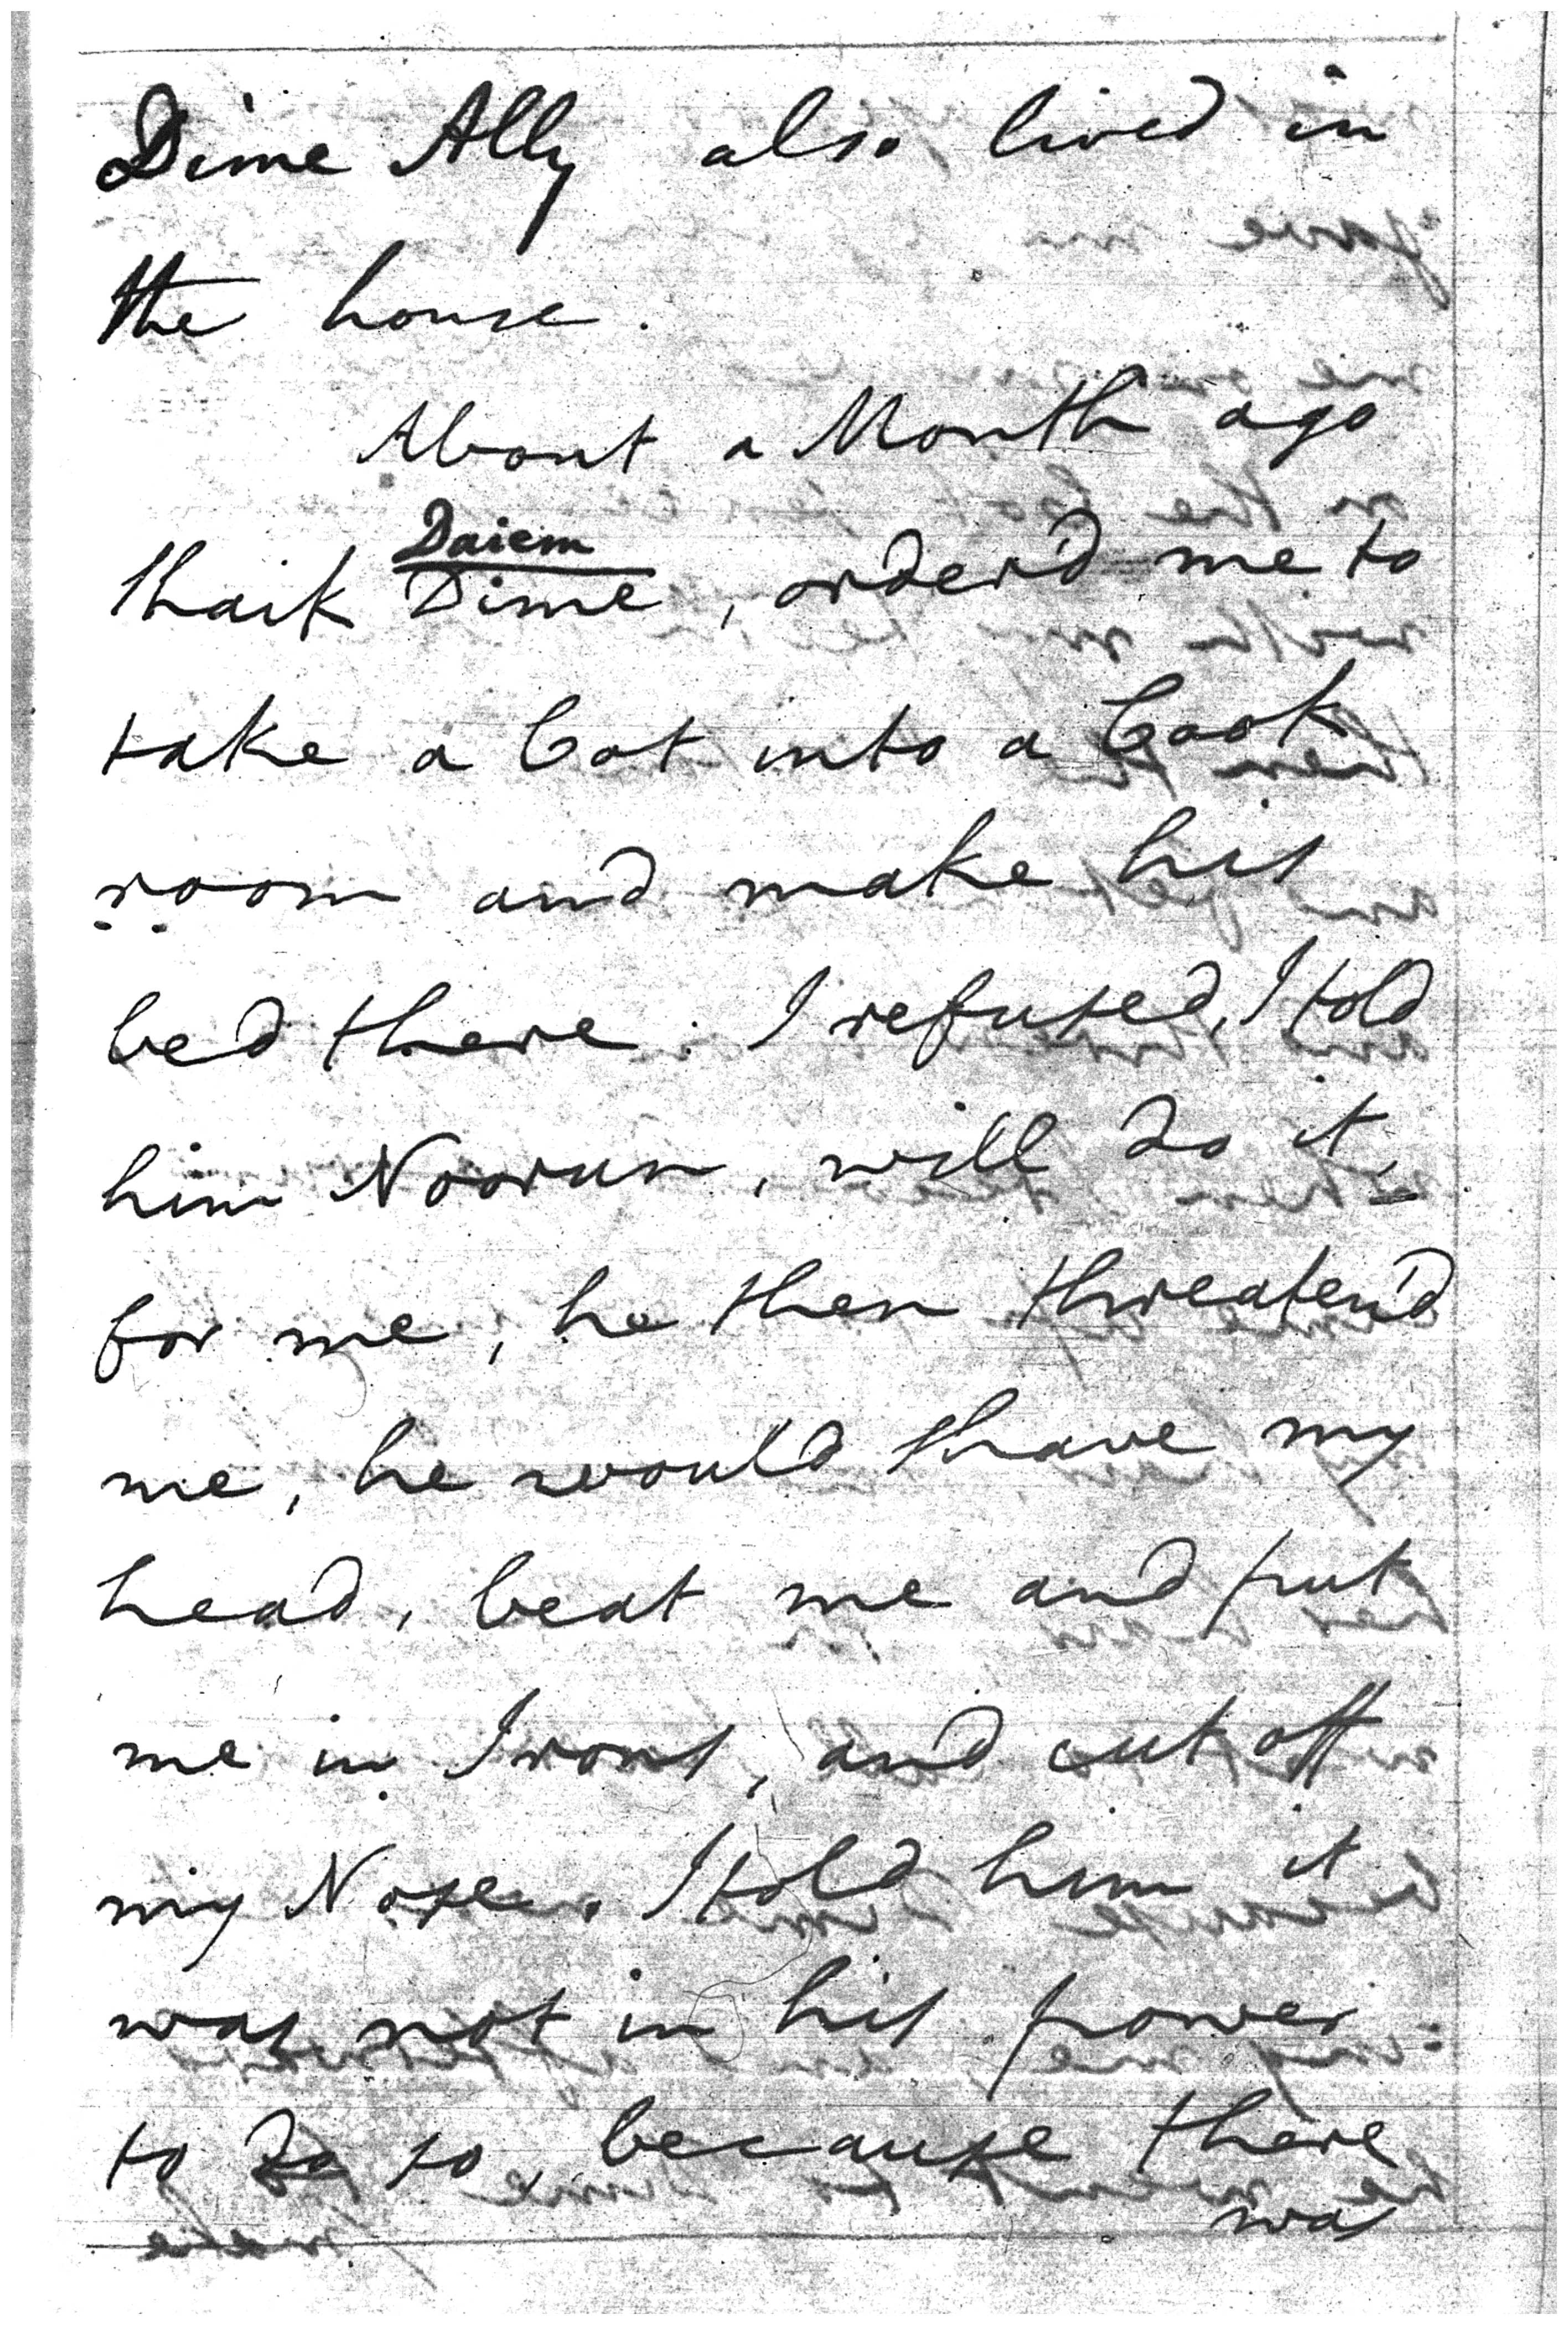 Dime Ally also lived in
the house.
About a Month ago
Shaik Daiem Dime, order'd me to
take a Cot into a Cook
room and make his
bed there. I refused, I told
him Noorun, will do it,
for me, he then threaten'd
me, he would shave my
head, beat me and put
me in Irons, and cut off
my Nose. I told him it
was not in his power
to do so, because there
was